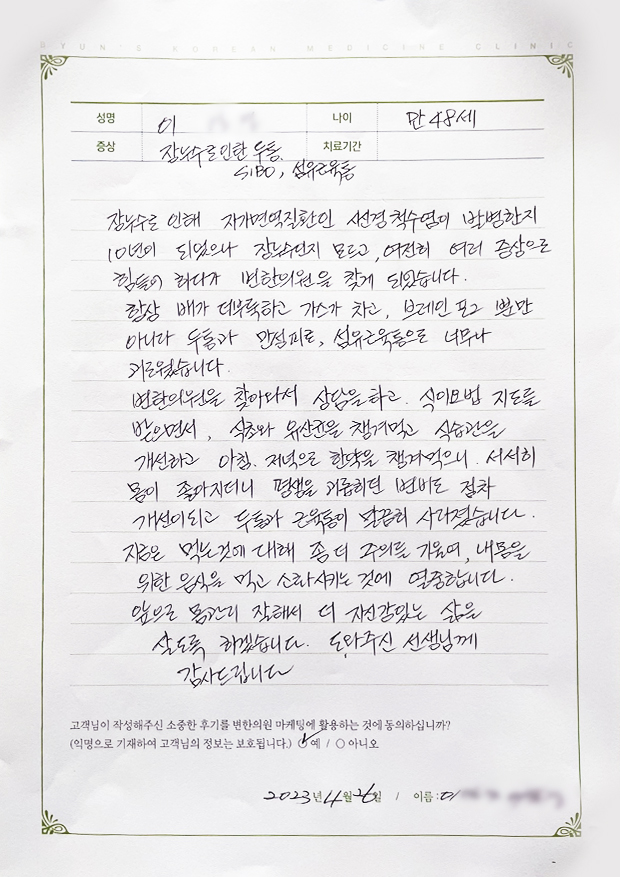 BYUN'S KOREAN MEDICINE CLINIC
성명 이 나이 만 48세
증상 장누수로인한 두통. 치료기간
SIBO, 섬유근육통
장누수로 인해 자가면역질환인 시신경척수염이 발병한지
10년이 되었으나 장누수인지 모르고, 여전히 여러 증상으로
힘들어 하다가 변한의원을 찾게 되었습니다.
항상 배가 더부룩하고 가스가 차고, 브레인 포그 뿐만
아니라 두통과 만성피로, 섬유근육통으로 너무나
괴로웠습니다.
변한의원을 찾아와서 상담을 하고. 식이요법 지도를
받으면서, 식초와 유산균을 챙겨먹고 식습관을
개선하고 아침. 저녁으로 한약을 챙겨먹으니. 서서히
몸이 좋아지더니 평생을 괴롭히던 변비도 점차
개선이되고 두통과 근육통이 말끔히 사라졌습니다.
지금은 먹는것에 대해 좀 더 주의를 기울여, 내몸을
위한 음식을 먹고 소화시키는 것에 열중합니다.
앞으로 몸관리 잘해서 더 자신감있는 삶을
살도록 하겠습니다. 도와주신 선생님께
감사드립니다
고객님이 작성해주신 소중한 후기를 변한의원 마케팅에 활용하는 것에 동의하십니까?
(익명으로 기재하여 고객님의 정보는 보호됩니다.) ○ 예 / ○ 아니오
2023년 4월 26일 / 이름 : 이